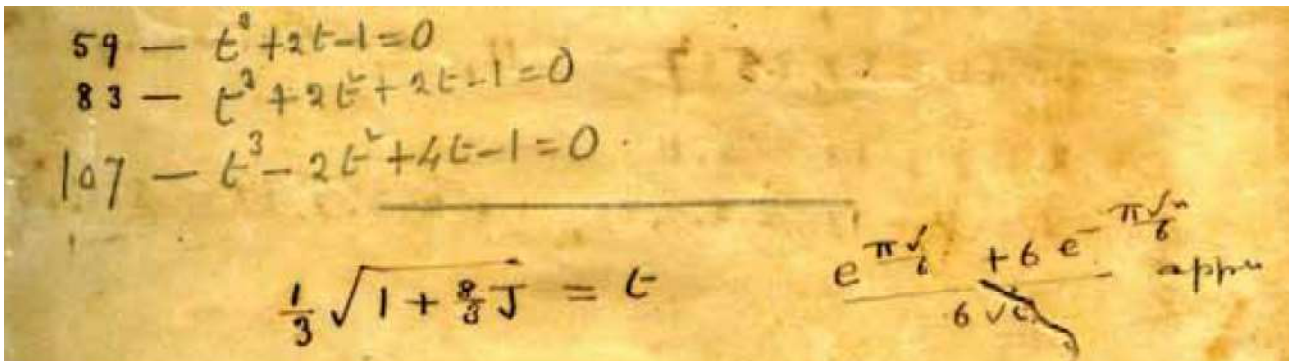 59 — t³ + 2t - 1 = 0
83 — t³ + 2t² + 2t - 1 = 0
107 — t³ - 2t² + 4t - 1 = 0
1/3 √(1 + 8/3 J) = t
e^(π√/6) + 6 e^(-π√n/6) appr
6